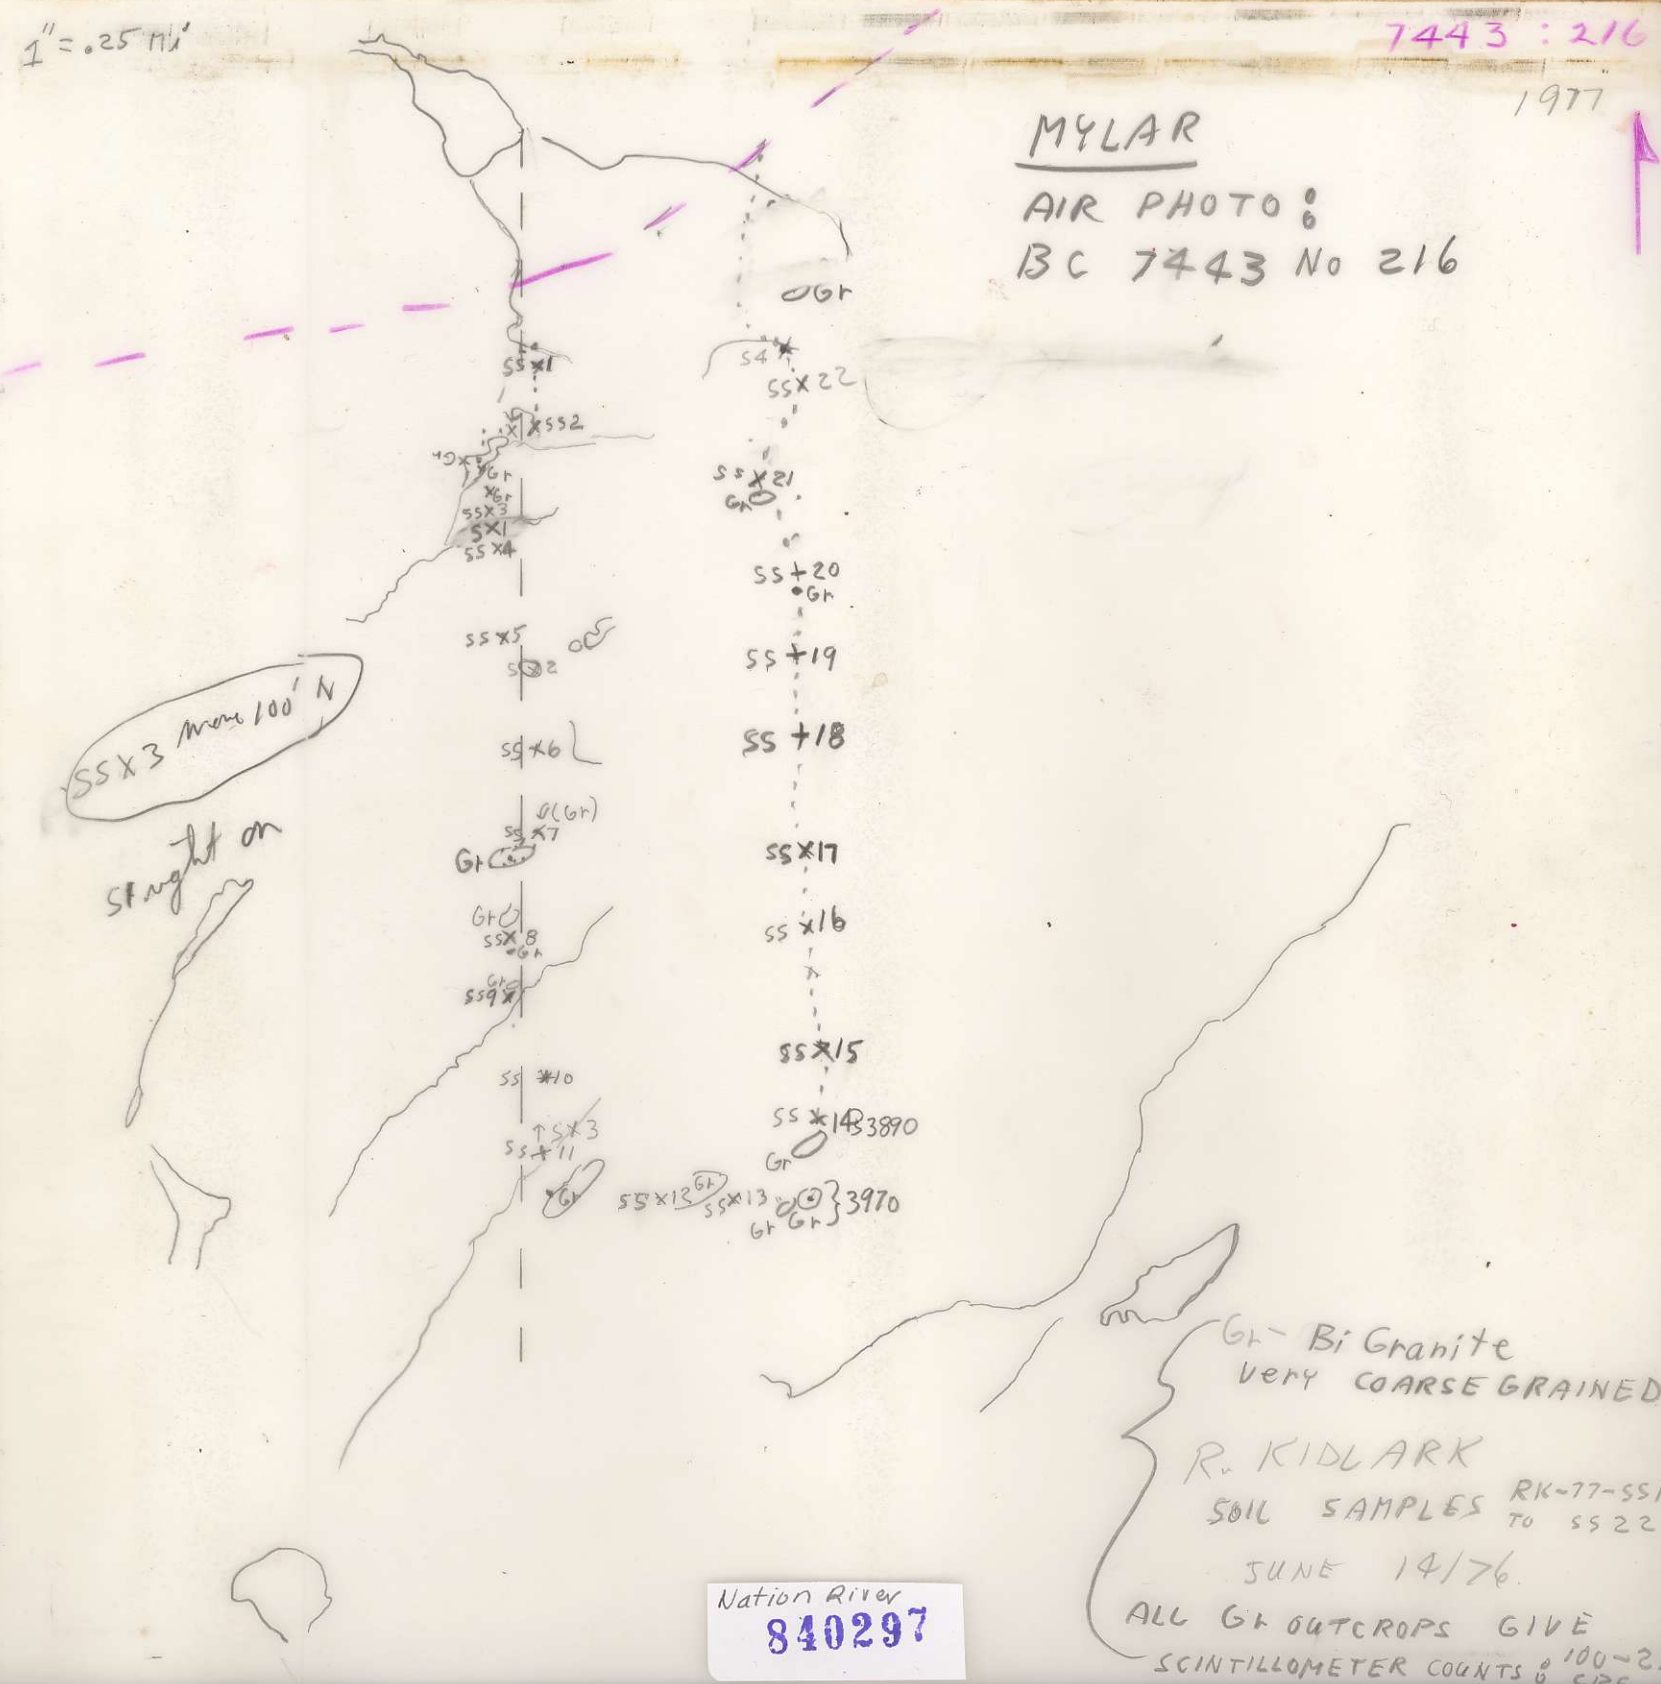 1" = .25 Mi
7443 : 216
1977
MYLAR
AIR PHOTO :
BC 7443 No 216
Gr
SSX1
S4 X
SSX22
X XSS2
XGr
XGr
XGr
SSX21
Gr
SSX3
SX1
SSX4
SS+20
Gr
SSX5
SS+19
SX2
SSX3 move 100' N
SS+18
SSX6
(Gr)
SSX7
straight on
Gr
SSX17
Gr
SSX8
Gr
SSX16
Gr
SS9X
SSX15
SSX10
SSX14
3890
↑SX3
SS+11
Gr
Gr
SSX12
Gr
SSX13
}3970
Gr Gr
Gr - Bi Granite
very COARSE GRAINED
R. KIDLARK
SOIL SAMPLES RK-77-SS1
TO SS22
JUNE 14/76
ALL Gr OUTCROPS GIVE
SCINTILLOMETER COUNTS : 100-2
Nation River
840297